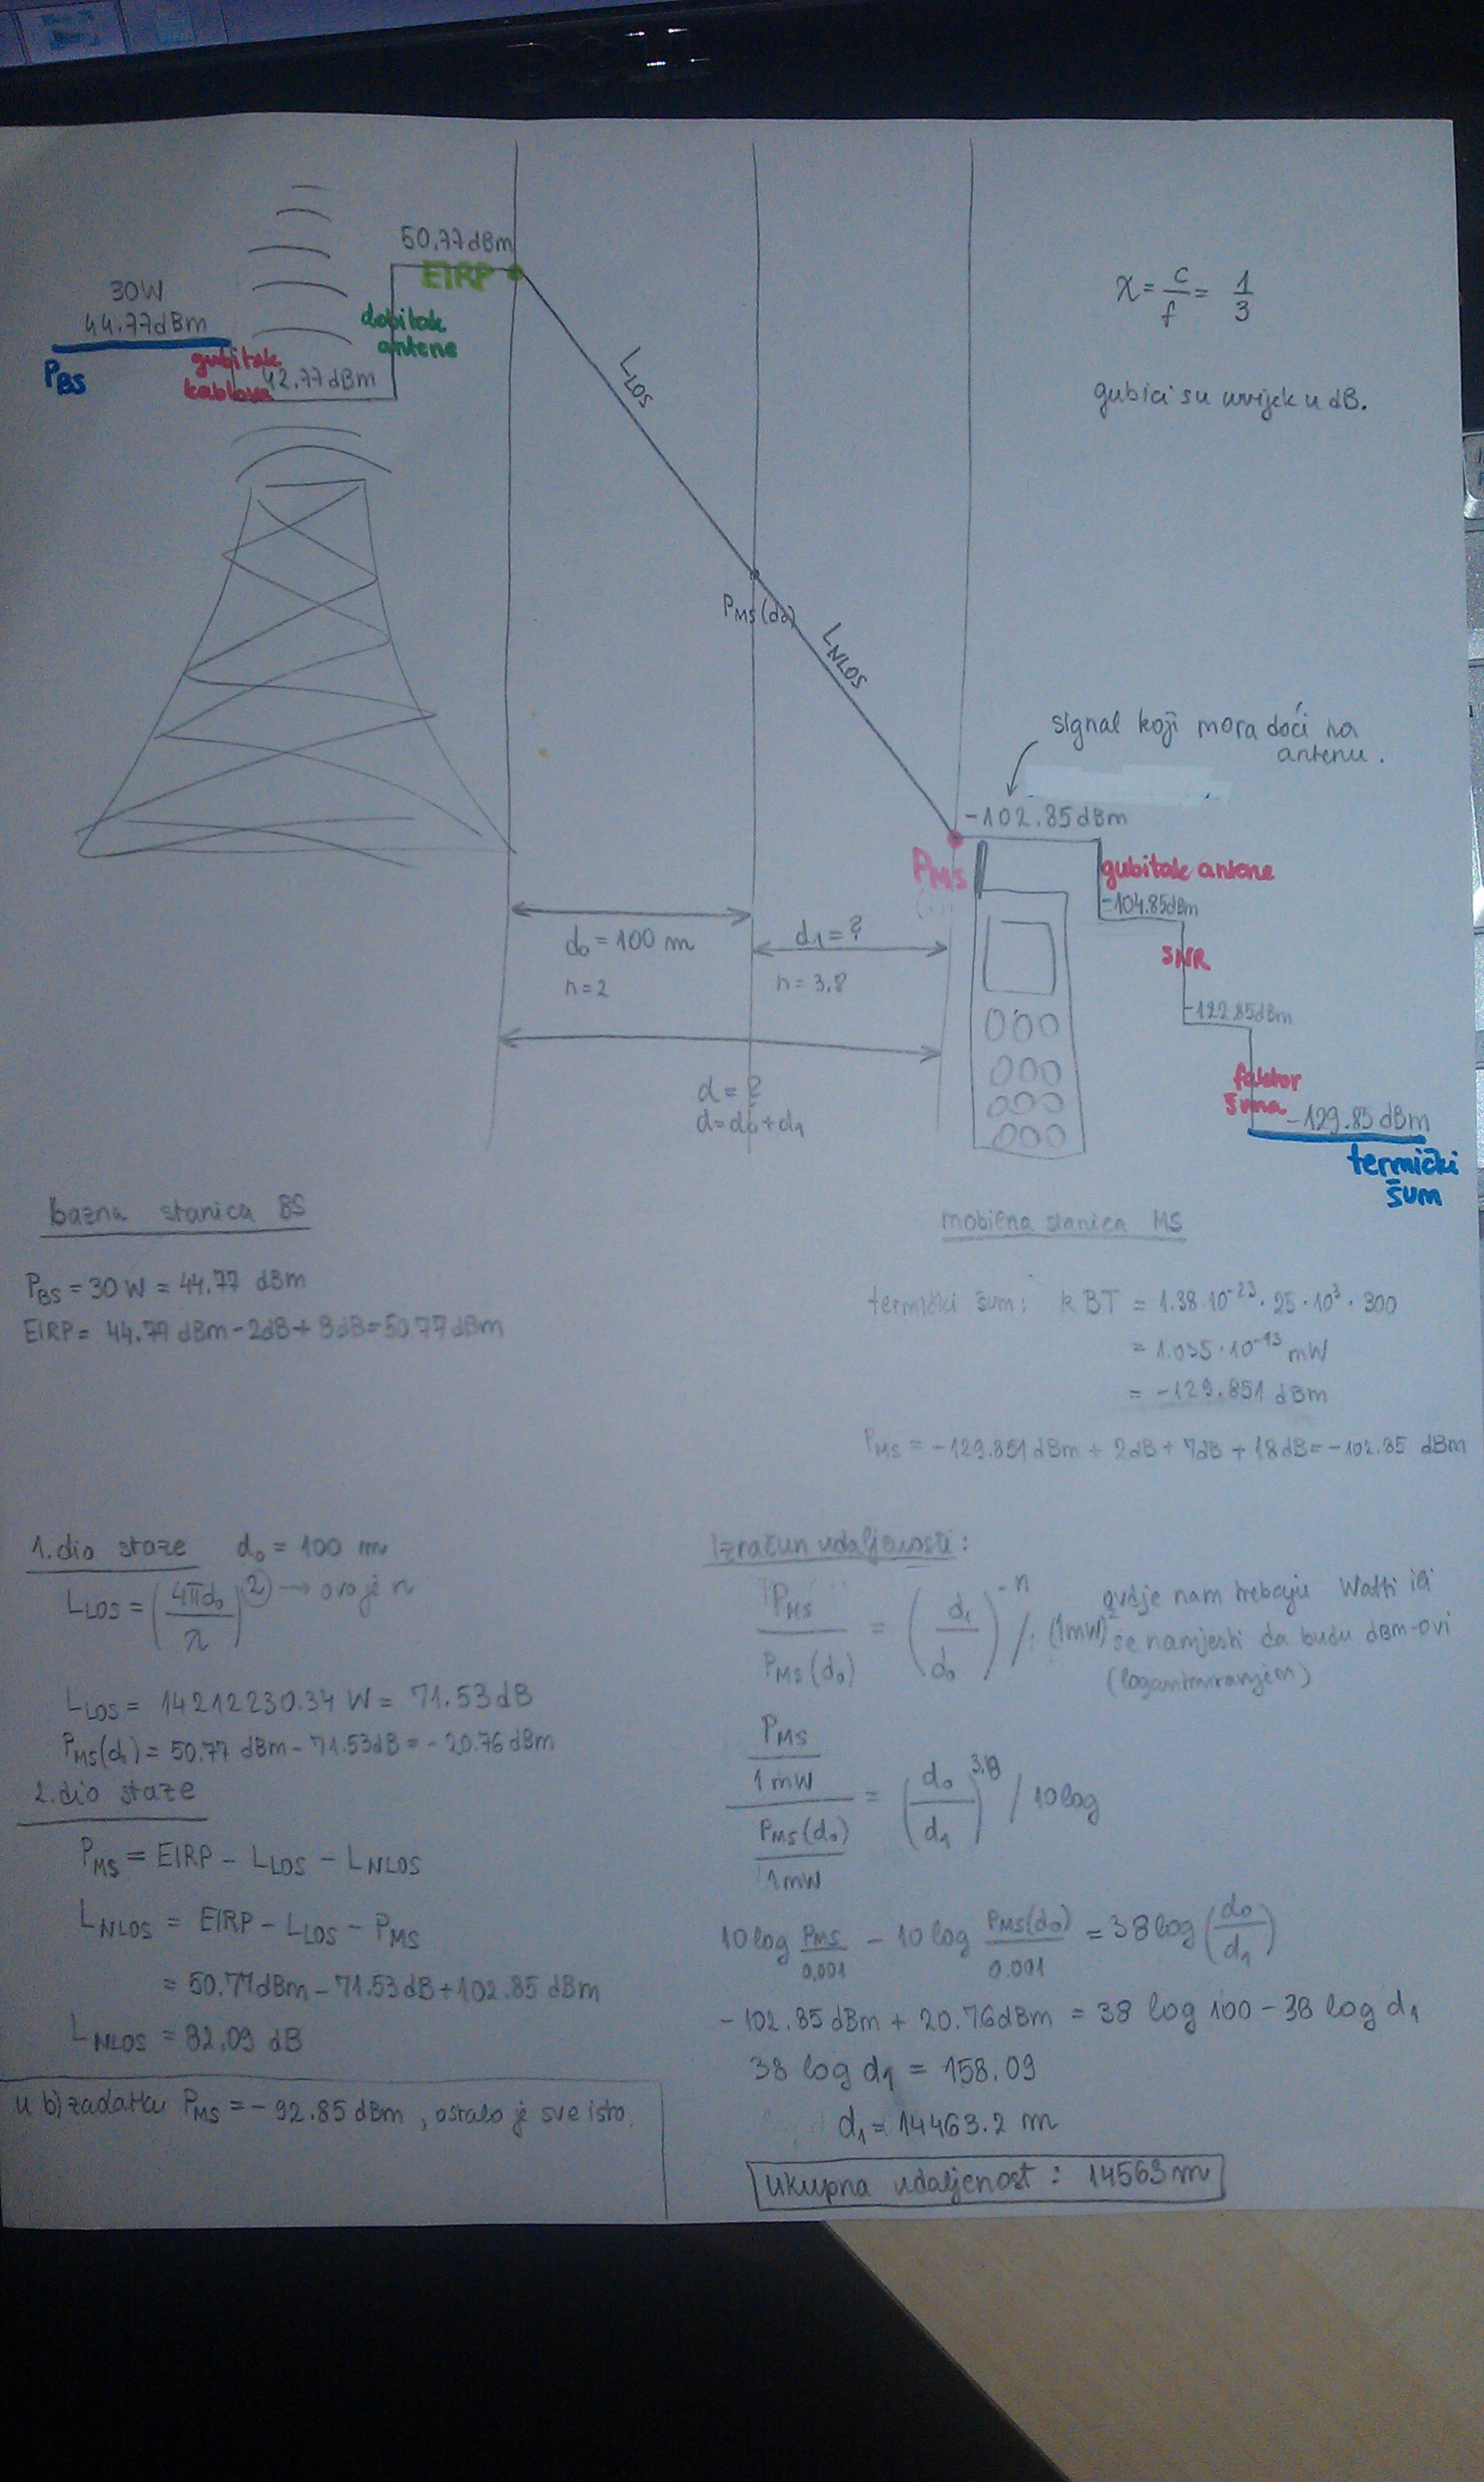 DELL
50.77dBm
EIRP
30W
44.77dBm
PBS
gubitak
kablova
42.77dBm
dobitak
antene
LLOS
λ = c/f = 1/3
gubici su uvijek u dB.
PMS(d0)
LNLOS
signal koji mora doći na
antenu.
-102.85dBm
PMS
gubitak antene
-104.85dBm
SNR
-122.85dBm
faktor
šuma
-129.85 dBm
termički
šum
d0 = 100 m
n = 2
d1 = ?
n = 3.8
d = ?
d = d0 + d1
bazna stanica BS
PBS = 30 W = 44.77 dBm
EIRP = 44.77 dBm - 2dB + 8dB = 50.77 dBm
mobilna stanica MS
termički šum: kBT = 1.38·10^-23 · 25·10^3 · 300
= 1.035·10^-13 mW
= -129.851 dBm
PMS = -129.851 dBm + 2dB + 7dB + 18dB = -102.85 dBm
1. dio staze d0 = 100 m
LLOS = (4πd0/λ)^2 → ovo je n
LLOS = 14212230.34 W = 71.53 dB
PMS(d0) = 50.77 dBm - 71.53dB = -20.76 dBm
2. dio staze
PMS = EIRP - LLOS - LNLOS
LNLOS = EIRP - LLOS - PMS
= 50.77dBm - 71.53dB + 102.85 dBm
LNLOS = 82.09 dB
u b) zadatku PMS = -92.85 dBm, ostalo je sve isto.
Izračun udaljenosti:
PMS/PMS(d0) = (d1/d0)^-n /: (1mW)^2
ovdje nam trebaju Watti ili
se namjesti da budu dBm-ovi
(logaritmiranjem)
(PMS/1mW)/(PMS(d0)/1mW) = (d0/d1)^3.8 / 10log
10 log PMS/0.001 - 10 log PMS(d0)/0.001 = 38 log (d0/d1)
-102.85 dBm + 20.76dBm = 38 log 100 - 38 log d1
38 log d1 = 158.09
d1 = 14463.2 m
ukupna udaljenost: 14563m